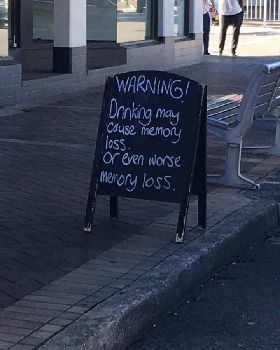 WARNING!
Drinking may
cause memory
loss.
Or even worse
memory loss.